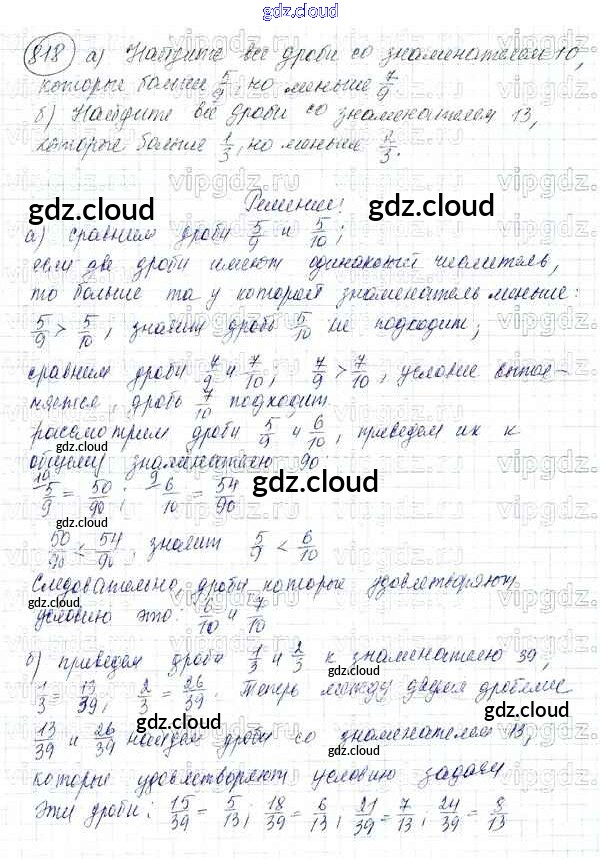 gdz.cloud
818 а) Найдите все дроби со знаменателем 10,
которые больше 5/9, но меньше 7/9.
б) Найдите все дроби со знаменателем 13,
которые больше 1/3, но меньше 2/3.
vipgdz.ru
Решение:
gdz.cloud gdz.cloud
а) сравним дроби 5/9 и 5/10;
если две дроби имеют одинаковый числитель,
то больше та у которой знаменатель меньше:
5/9 > 5/10, значит дробь 5/10 не подходит;
gdz.cloud
сравним дроби 7/9 и 7/10; 7/9 > 7/10, условие выпол-
няется, дробь 7/10 подходит
рассмотрим дроби 5/9 и 6/10, приведем их к
общему знаменателю 90
5/9 = 50/90; 6/10 = 54/90
gdz.cloud gdz.cloud
gdz.cloud
50/90 < 54/90, значит 5/9 < 6/10
Следовательно, дроби которые удовлетворяют
gdz.cloud
условию это: 6/10 и 7/10
gdz.cloud
б) приведем дроби 1/3 и 2/3 к знаменателю 39,
1/3 = 13/39; 2/3 = 26/39. Теперь между двумя дробями
gdz.cloud gdz.cloud
13/39 и 26/39 найдем дроби со знаменателем 13,
которые удовлетворяют условию задачи
Эти дроби: 15/39 = 5/13; 18/39 = 6/13; 21/39 = 7/13; 24/39 = 8/13
gdz.cloud